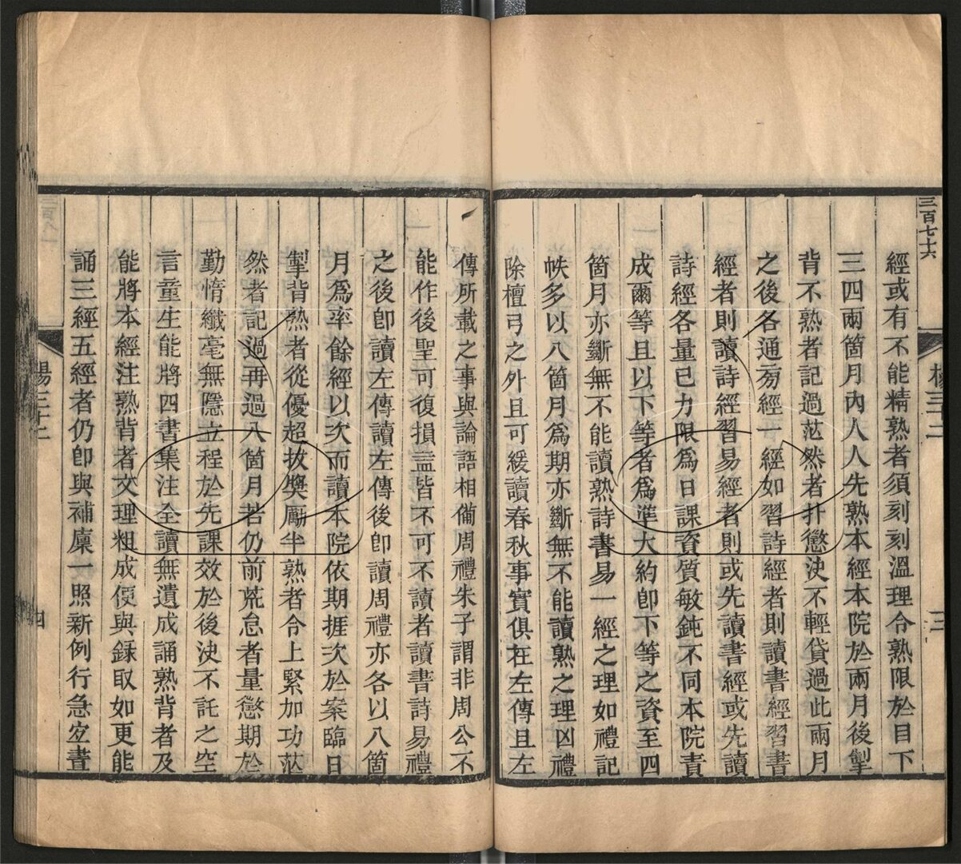 三百七十六
經或有不能精熟者須刻刻溫理令熟限於目下
三四兩箇月內人人先熟本經本院於兩月後掣
背不熟者記過茫然者扑懲決不輕貸過此兩月
之後各通旁經一經如習詩經者則讀書經習書
經者則讀詩經習易經者則或先讀書經或先讀
詩經各量己力限為日課資質敏鈍不同本院責
成爾等且以下等者為準大約即下等之資至四
箇月亦斷無不能讀熟詩書易一經之理如禮記
帙多以八箇月為期亦斷無不能讀熟之理凶禮
除檀弓之外且可緩讀春秋事實俱在左傳且左
楊三十二
三
傳所載之事與論語相備周禮朱子謂非周公不
能作後聖可復損益皆不可不讀者讀書詩易禮
之後卽讀左傳讀左傳後卽讀周禮亦各以八箇
月爲率餘經以次而讀本院依期挨次於案臨日
掣背熟者從優超拔獎勵半熟者令上緊加功茫
然者記過再過八箇月若仍前荒怠者量懲期於
勤惰纖毫無隱立程於先課效於後決不託之空
言童生能將四書集注全讀無遺成誦熟背者及
能將本經注熟背者文理粗成便與錄取如更能
誦三經五經者仍卽與補廩一照新例行急宜晝
楊三十二
四